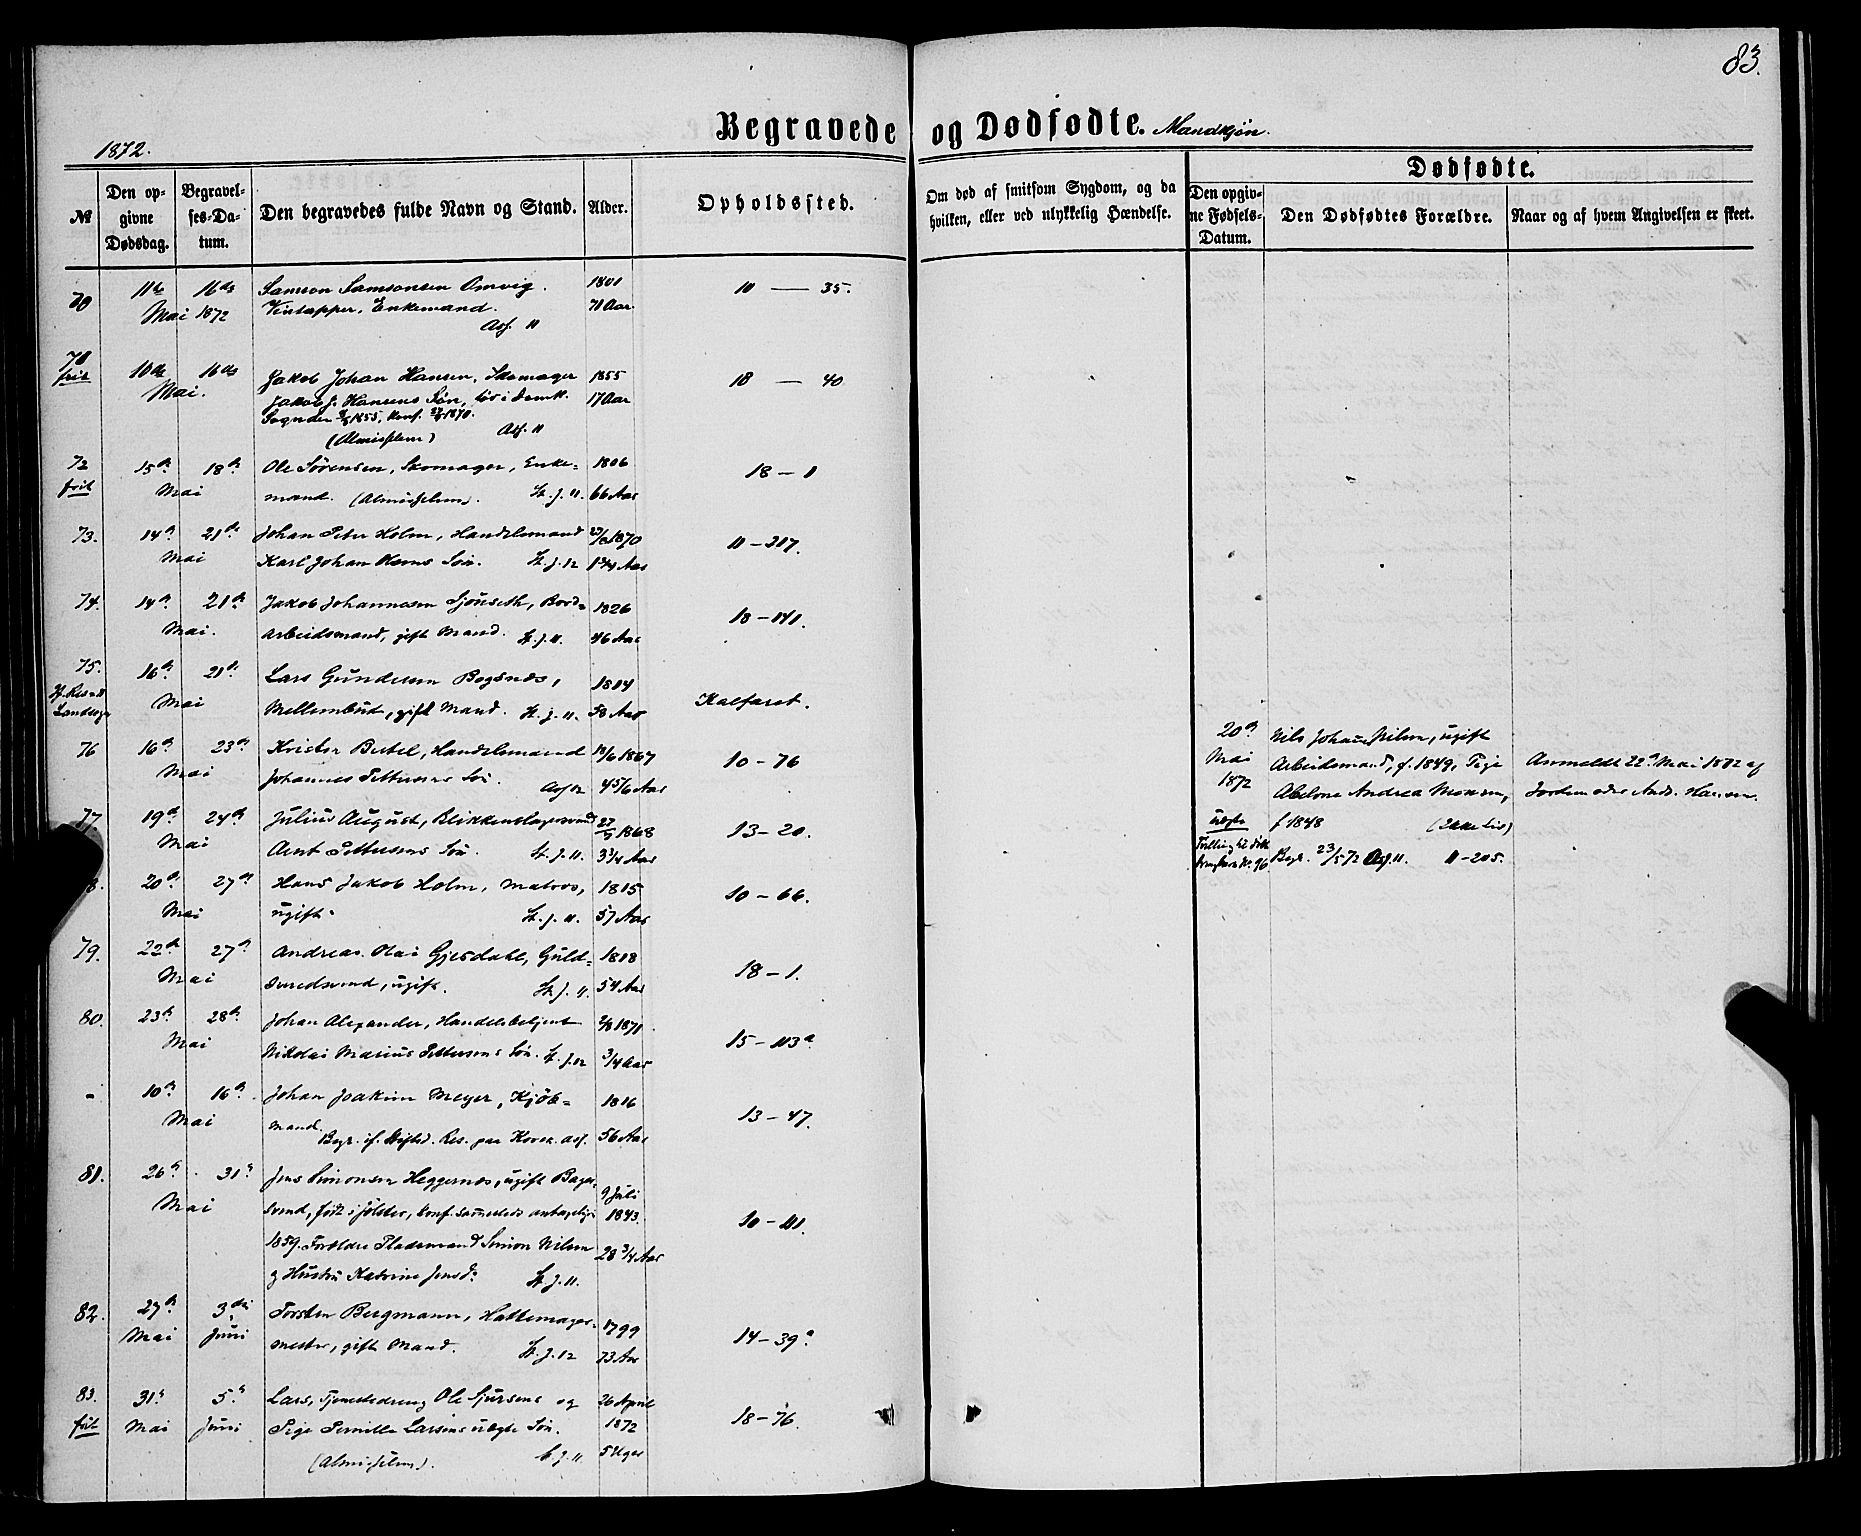 83.
Begravede og Dødfødte. Mandkjøn.
1872.
№
Den opgivne Dødsdag.
Begravelses-Datum.
Den begravedes fulde Navn og Stand.
Alder.
Opholdssted.
Om død af smitsom Sygdom, og da hvilken, eller ved ulykkelig Hændelse.
Dødfødte.
Den opgivne Fødsels-Datum.
Den Dødfødtes Forældre.
Naar og af hvem Angivelsen er skeet.
70 11te 16de Samson Samsonsen Omvig. 1801 10 — 35.
Mai 1872 Vintapper, Enkemand. 71 Aar
Asf. 11
71
frit 10de 16de Jakob Johan Hansen, Skomager 1855 18 — 40
Mai. Jakob J. Hansens Søn, 17 Aar
1855, konf. 1870.
(Almislem) Asf. 11
72 15de 18de Ole Sørensen, Skomager, Enke= 1806 18 — 1
frit Mai mand. (Almislem). St. J. 11. 66 Aar
73. 14de 21de Johan Peter Holm, Handelsmand 1870 11 — 217.
Mai Karl Johan Holms Søn. St. J. 12 1 3/4 Aar
74. 14de 21de Jakob Johannesen 1826 18 — 141.
Mai. arbeidsmand, gift Mand. St. J. 11. 46 Aar
75. 16de 21de Lars Gundersen Bogsnæs, 1814 Kalfaret.
Landsogn Mai Mellembud, gift Mand. St. J. 11. 58 Aar
76 16de 23de Krister Bertel, Handelsmand 1867 10 — 76
Mai Johannes Pettersens Søn. Asf 12 4 5/6 Aar
77. 19de 24de Julius August, Blikkenslagersvend 1868 13 — 20.
Mai Arnt Pettersens Søn. St. J. 11. 3 3/4 Aar
8. 20de 27de Hans Jakob Holm, Matros, 1815 10 — 66.
Mai ugift. St. J. 11. 57 Aar
79. 22de 27de Andreas Olai Gjesdahl, Guld= 1818 18 — 1.
Mai smedsvend, ugift. St. J. 11. 54 Aar
80. 23de 28de Johan Alexander, Handelsbetjent 1871 15 — 113a
Mai Nikolai Marius Pettersens Søn. St. J. 12 3/4 Aar
- 10de 16de Johan Joakim Meyer, Kjøb= 1816 13 — 47.
Mai mand. 56 Aar
Begr. if. Stiftsd. Res. paa Korsk. asf.
81. 26de 31te Jens Simonsen Heggernæs, ugift Bager= 9 Juli 10 — 111.
Mai svend, født i Jølster, konf. sammesteds antagelig 1843.
1859. Forældre Pladsmand Simon Nilsen 28 3/4 Aar
og Hustru Katrine Jensd. St. J. 11.
82. 27de 3die Torsten Bergmann, Hattemager= 1799 14 — 39a
Mai Juni mester, gift Mand. St. J. 12 73 Aar
83. 31te 5te Lars, Tjenestedreng Ole Sjursens og 26 April 18 — 76.
frit Mai Juni Pige Pernille Larsens uægte Søn. 1872
(Almislem). St. J. 11 5 Uger
20de Nils Johan Nilsen, ugift
Mai Arbeidsmand, f. 1849, Pige Anmeldt 22de Mai 1872 af
1872 Abelone Andrea Monsen, Jordemoder Hansen.
uægte f 1848
Tvilling til
No. 96 Begr. 23/5 72 Asf 11. 11 — 205.